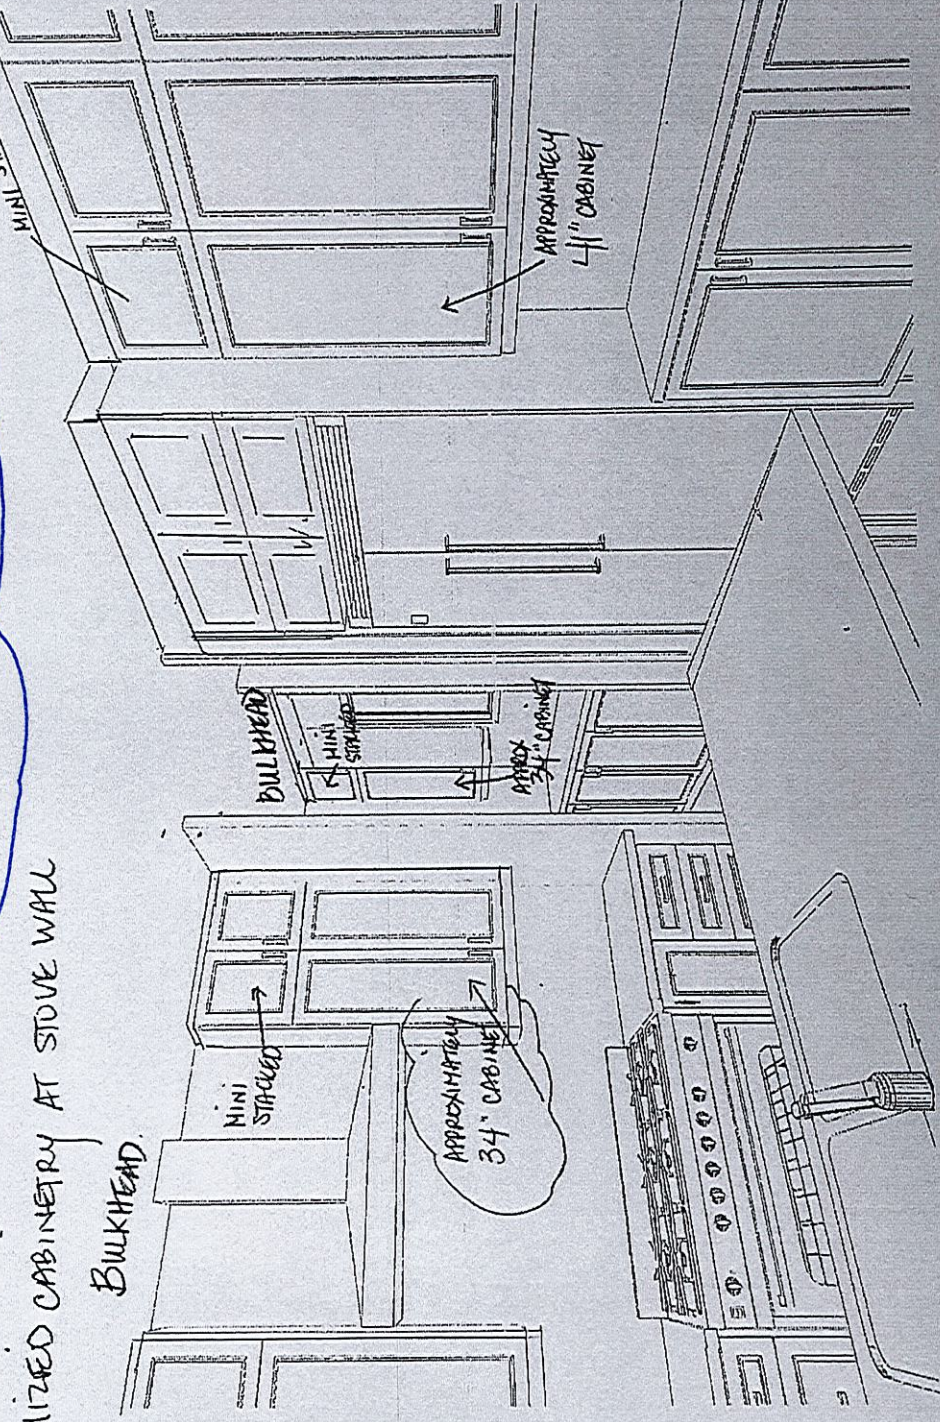 IZED CABINETRY AT STOVE WALL
BULKHEAD.
MINI
STACKED
APPROXIMATELY
34" CABINET
BULKHEAD
MINI
STACKED
APPROX
34" CABINET
MINI
APPROXIMATELY
41" CABINET